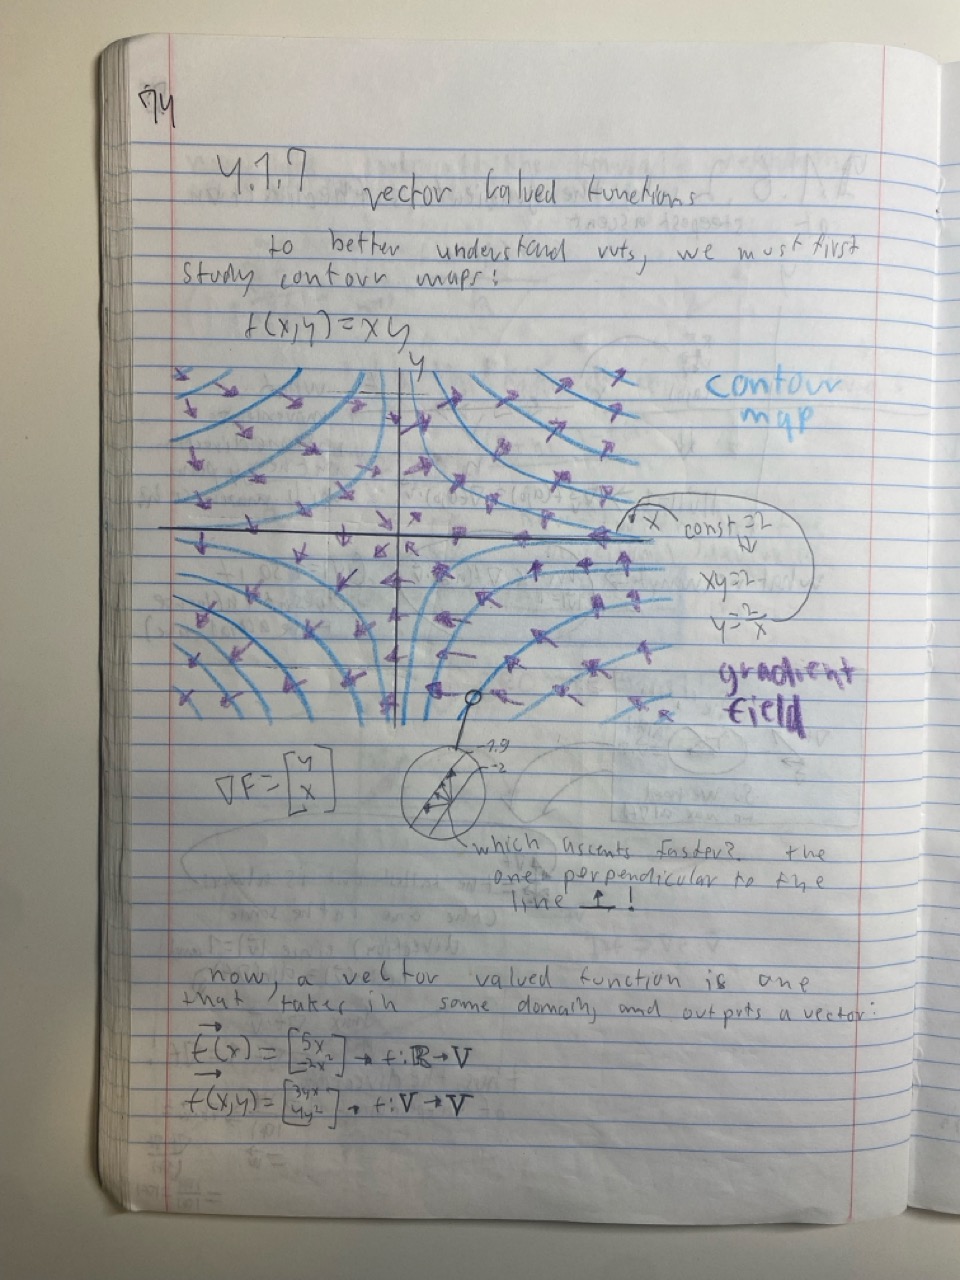 74
4.1.7
vector valued functions
to better understand vvfs, we must first
study contour maps:
f(x,y)=xy
y
contour
map
x
const.=2
⇓
xy=2
y=2/x
gradient
field
∇F=[y
x]
-1.9
-2
which ascents faster? the
one perpendicular to the
line ⊥!
now, a vector valued function is one
that takes in some domain, and outputs a vector:
f(x)=[5x
-2x²] → f:ℝ→V
f(x,y)=[3yx
4y²] → f:V→V